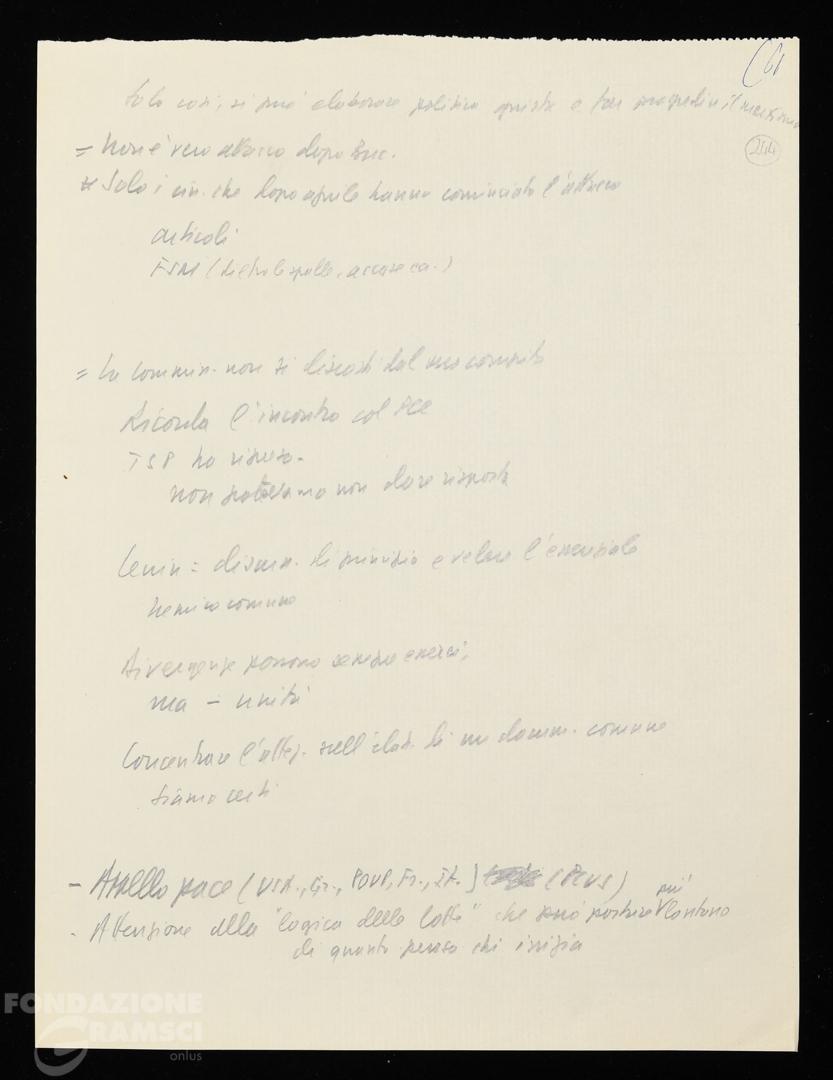 (61
Solo così, si può elaborare politica giusta e far progredire il marxismo
244
= Non è vero attacco dopo Buc.
= Solo i cin. che dopo aprile hanno cominciato l'attacco
articoli
FSM (dietro le spalle, accuse ecc.)
= La commiss. non si discosti dal suo compito
Ricorda l'incontro col PCC
ha risposto.
non potevamo non dare risposta
Lenin = discuss. di principio e vedere l'essenziale
nemico comune
Divergenze possono sempre esserci,
ma - unità
Concentrare l'atten. sull'elab. di un docum. comune
Siamo certi
- Appello pace (USA., Gr., POUP, Fr., It.) (PCUS)
- Attenzione alla "logica della lotta" che può portare più lontano
di quanto pensa chi inizia
FONDAZIONE
GRAMSCI
onlus